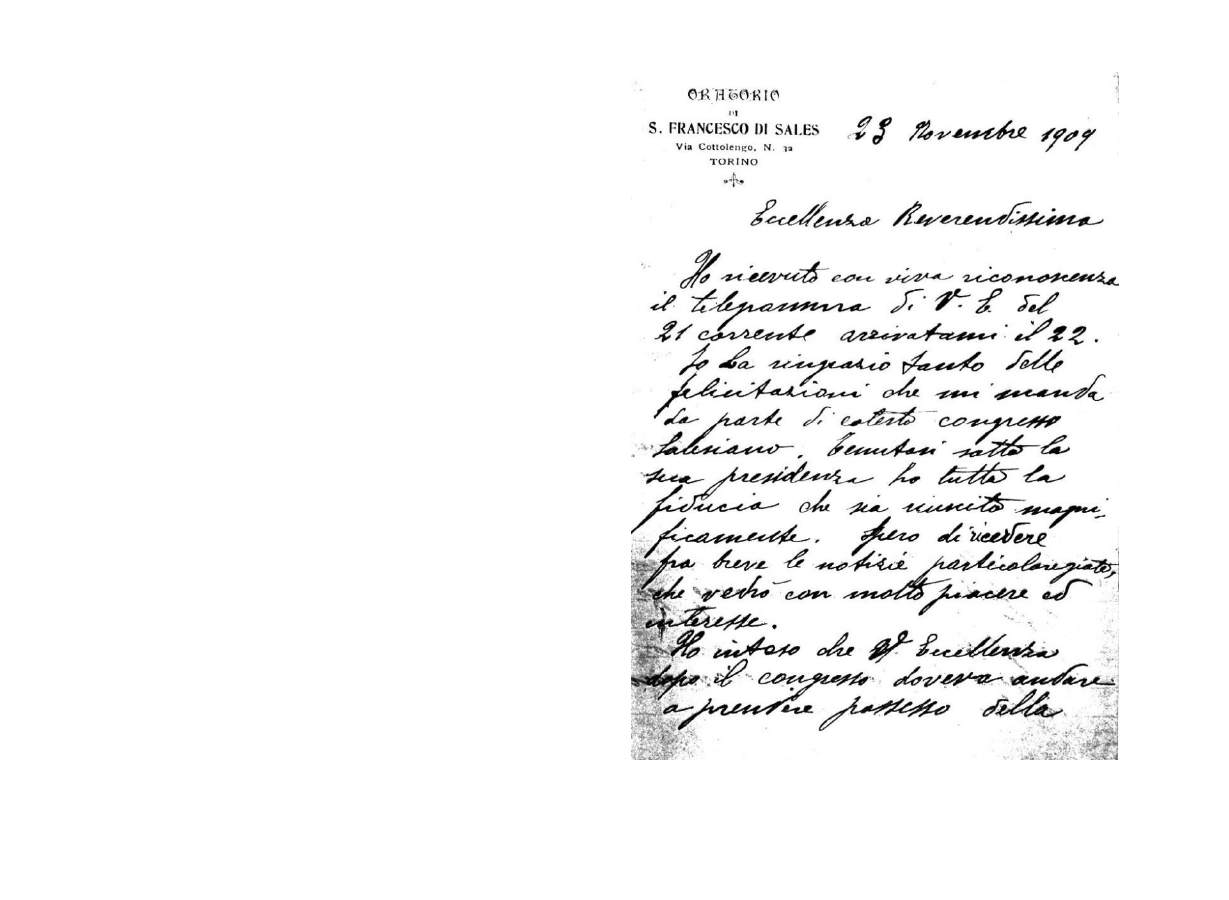 ORATORIO
DI
S. FRANCESCO DI SALES
Via Cottolengo, N. 32
TORINO
23 Novembre 1909
Eccellenza Reverendissima
Ho ricevuto con viva riconoscenza
il telegramma di V. E. del
21 corrente arrivatami il 22.
Io La ringrazio tanto delle
felicitazioni che mi manda
da parte di cotesto congresso
Salesiano. Tenutosi sotto la
sua presidenza ho tutta la
fiducia che sia riuscito magni-
ficamente. Spero di ricevere
fra breve le notizie particolaregiate,
che vedrò con molto piacere ed
interesse.
Ho inteso che V. Eccellenza
dopo il congresso doveva andare
a prendere possesso della